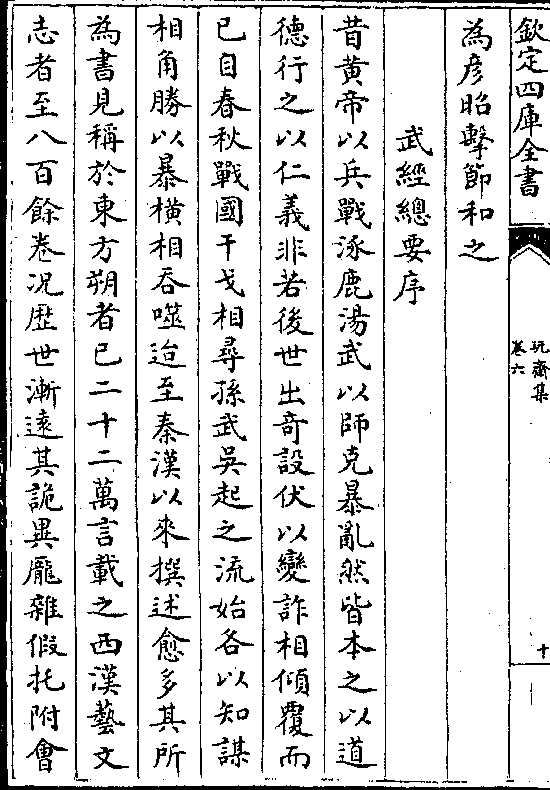 欽定四庫全書
玩齋集
卷六
十
為彦昭擊節和之
武經總要序
昔黄帝以兵戰涿鹿湯武以師克暴亂然皆本之以道
德行之以仁義非若後世出竒設伏以變詐相傾覆而
已自春秋戰國干戈相尋孫武吳起之流始各以知謀
相角勝以暴横相吞噬迨至秦漢以來撰述愈多其所
為書見稱於東方朔者已二十二萬言載之西漢藝文
志者至八百餘卷况歴世漸逺其詭異龎雜假托附會